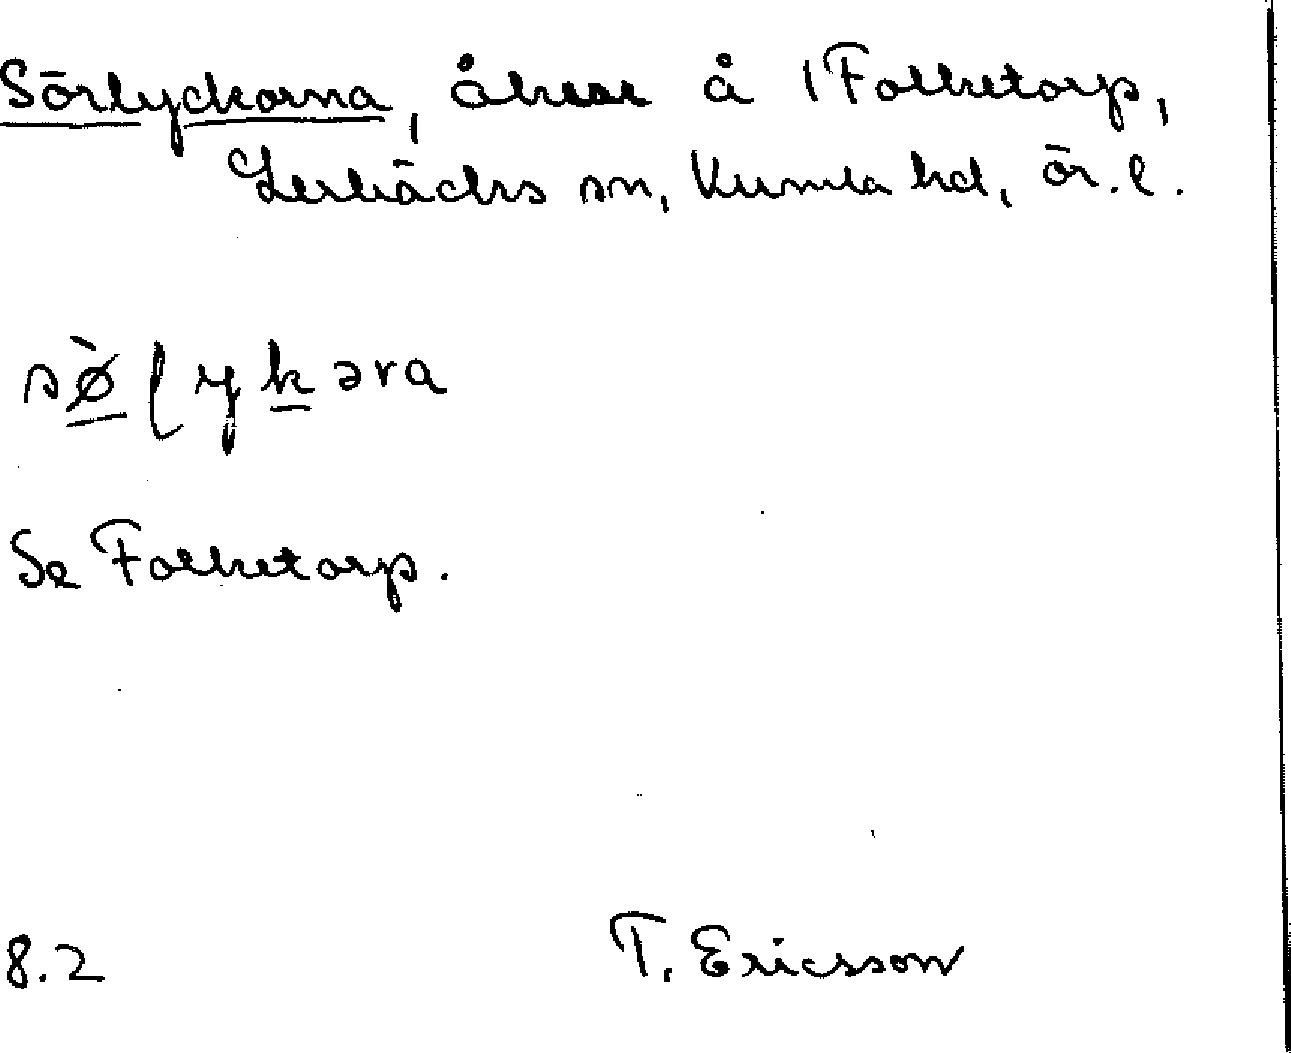 Sörlyckorna, åkrar å 1 Folketorp,
Lerbäcks sn, Kumla hd, ör.l.
sø̀ɭykəra
Se Folketorp.
8.2 T. Ericsson